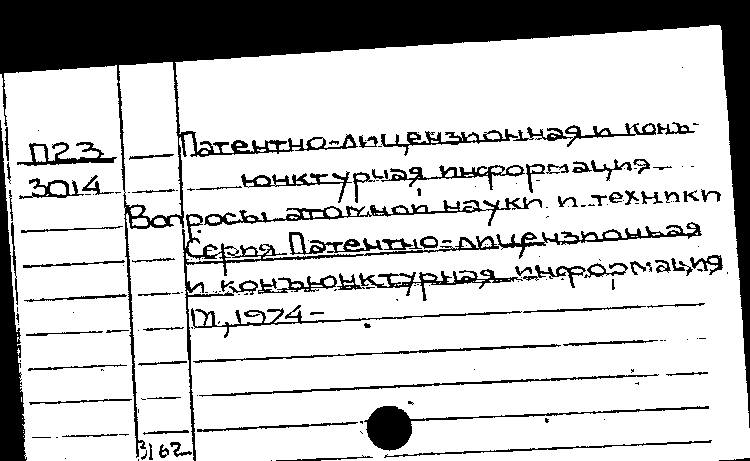 П23
3014
Патентно-лицензионная и конъ-
юнктурная информация
Вопросы атомной науки и техники
Серия Патентно-лицензионная
и конъюнктурная информация
М, 1974-
3162